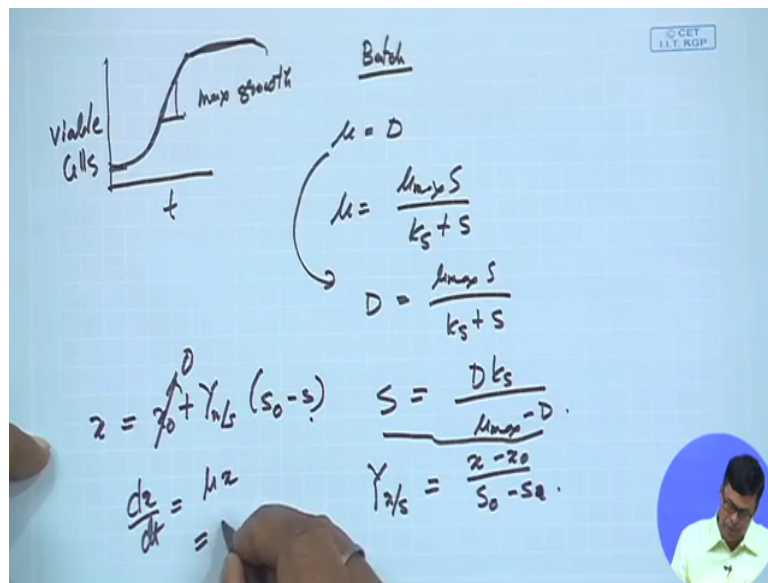 © CET
I.I.T. KGP
Batch
viable
Cells
max growth
t
μ = D
μ = μmax S / (kS + S)
D = μmax S / (kS + S)
x = x0 + Yx/s (S0 - S)
0
S = D kS / (μmax - D) .
Yx/s = (x - x0) / (S0 - S) .
dx/dt = μx
=